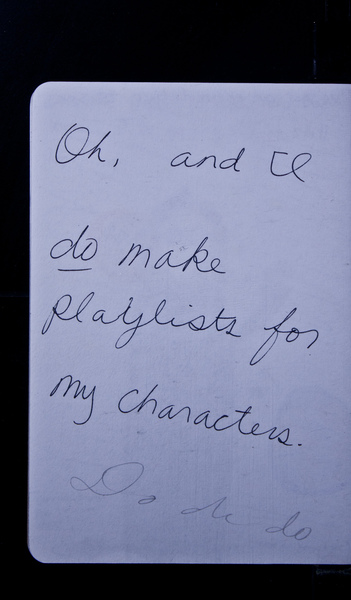 Oh, and I
do make
playlists for
my characters.
Do de do